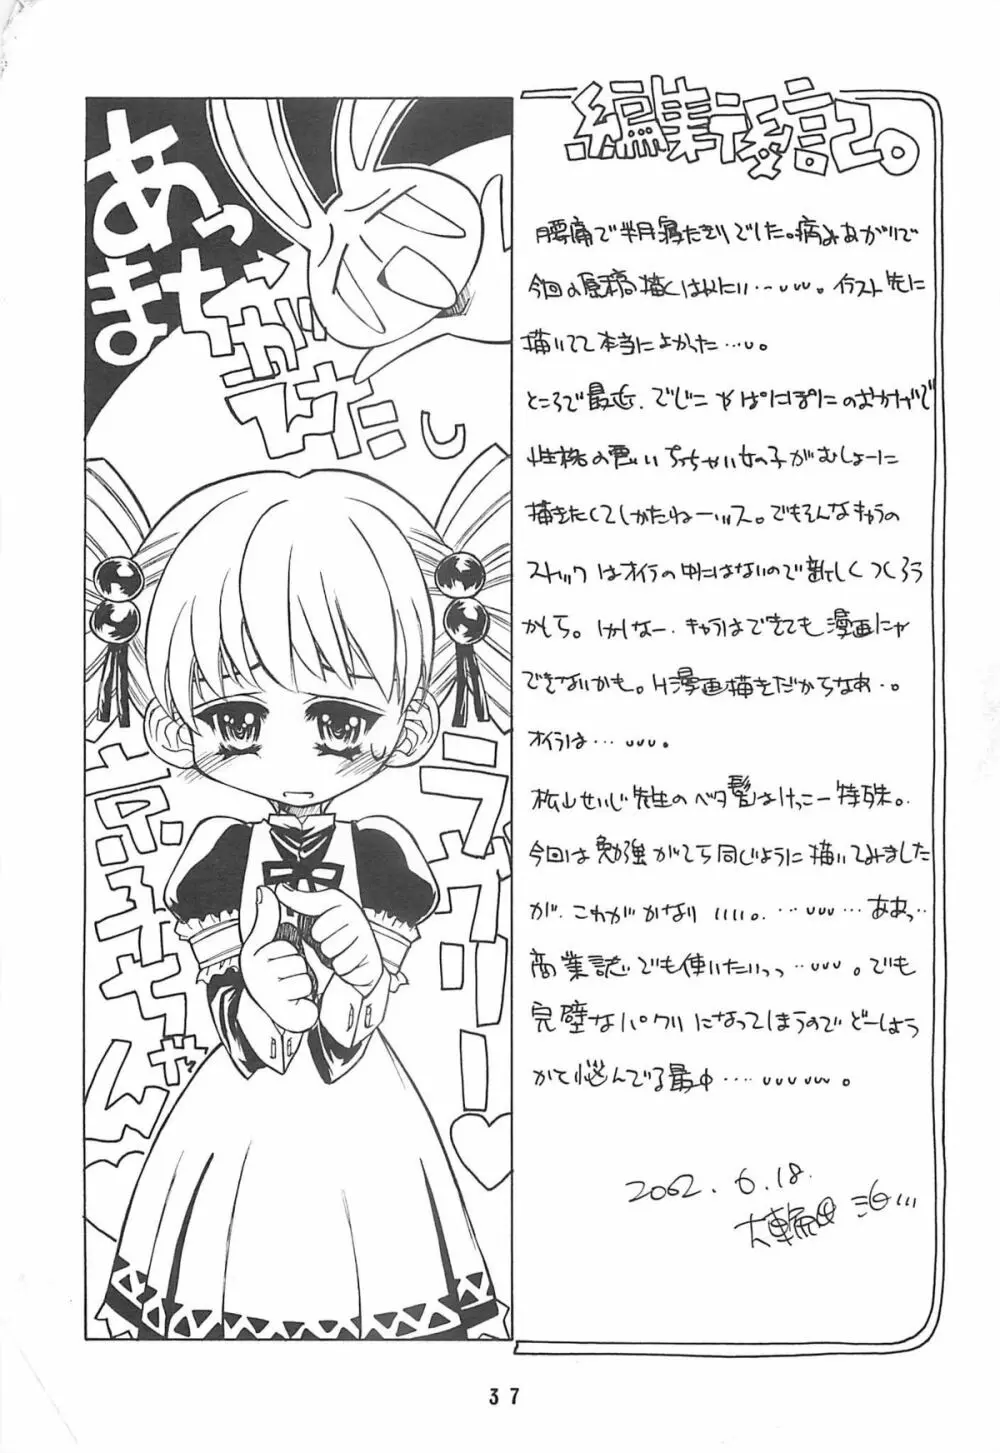 編集後記。
腰痛で半月寝たきりでした。病みあがりで
今回の原稿描くはねたい…〜っっ。イラスト先に
描いてて本当によかった…っ。
ところで最近、でじこやぱにぽにのおかげで
性格の悪いちっちゃい女の子がむしょーに
描きたくてしかたねーッス。でもそんなキャラの
ストックはオイラの中にはないので新しくつくろう
かしら。しかしなー、キャラはできても漫画にゃ
できないかも。H漫画描きだからなあ…。
オイラは…っっっ。
松山せいじ先生のベタ髪はけっこー特殊。
今回は勉強がてら同じように描いてみました
が、これがかなりいいい。…っっっ…ああっ…
商業誌でも使いたいっっ…っっっ。でも
完璧なパクリになってしまうのでどーしよう
かと悩んでる最中…っっっっ。
2002.6.18.
大輪田
あっ
まちがえたし
ラヴリー
京子ちゃん
37